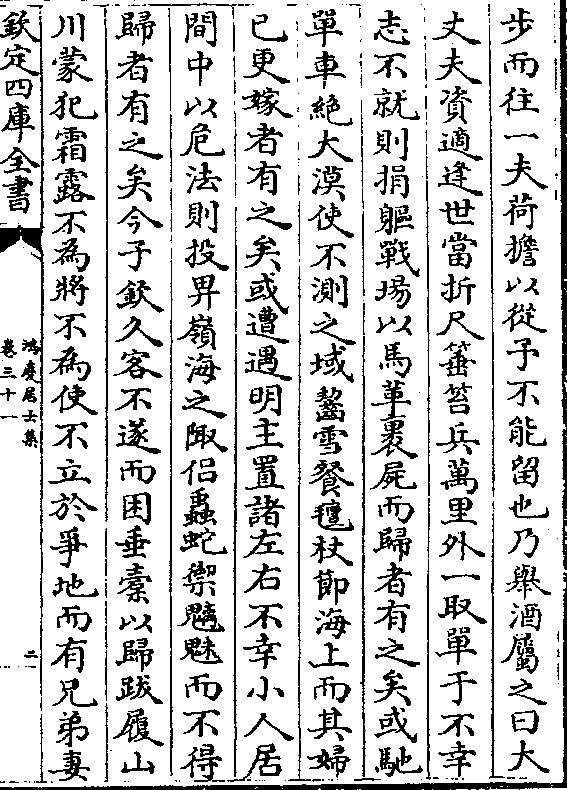 步而往一夫荷擔以從予不能留也乃舉酒屬之曰大
丈夫資適逢世當折尺箠笞兵萬里外一取單于不幸
志不就則捐軀戰場以馬革裹屍而歸者有之矣或馳
單車絶大漠使不測之域齧雪餐氊杖節海上而其婦
已更嫁者有之矣或遭遇明主置諸左右不幸小人居
間中以危法則投畀嶺海之陬侣蟲蛇禦魑魅而不得
歸者有之矣今子欽久客不遂而困垂橐以歸跋履山
川蒙犯霜露不為將不為使不立於爭地而有兄弟妻
欽定四庫全書
鴻慶居士集
卷三十一
二